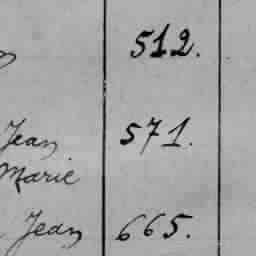 512.
Jean 571.
Marie
Jean 665.